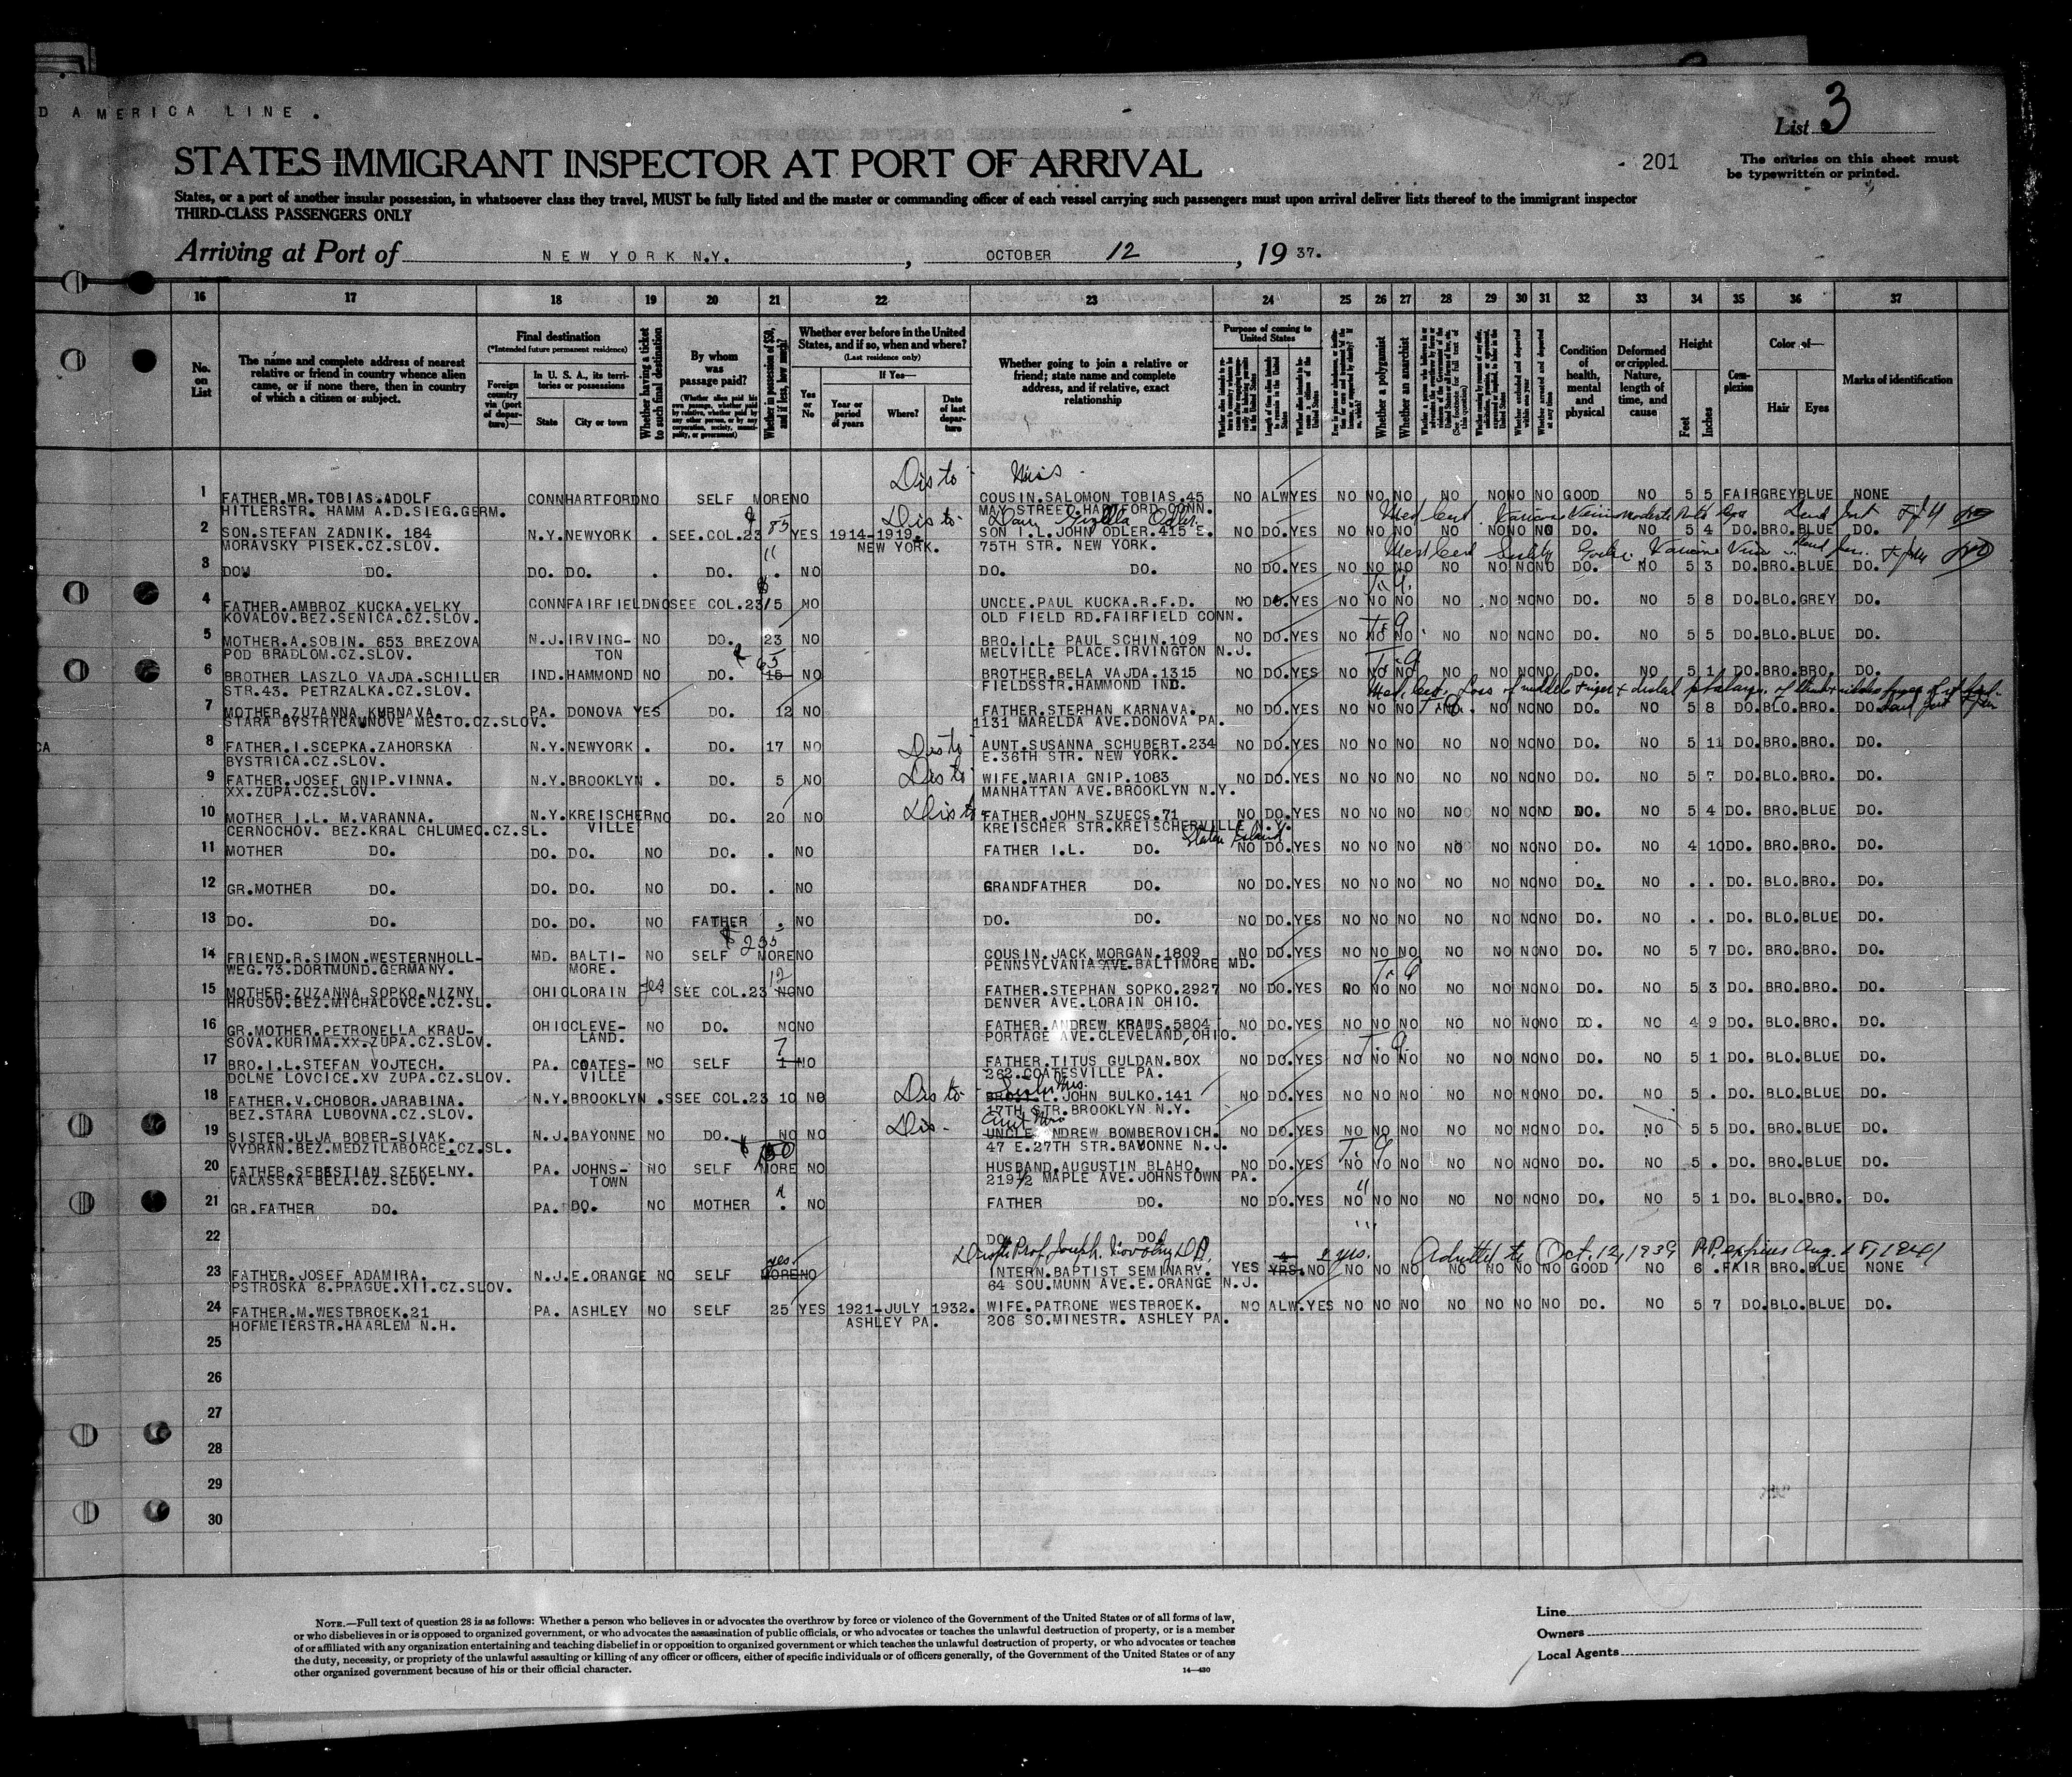 D AMERICA LINE.
List 3
STATES IMMIGRANT INSPECTOR AT PORT OF ARRIVAL
- 201
The entries on this sheet must be typewritten or printed.
States, or a port of another insular possession, in whatsoever class they travel, MUST be fully listed and the master or commanding officer of each vessel carrying such passengers must upon arrival deliver lists thereof to the immigrant inspector
THIRD-CLASS PASSENGERS ONLY
Arriving at Port of NEW YORK N.Y., OCTOBER 12, 19 37.
16 17 18 19 20 21 22 23 24 25 26 27 28 29 30 31 32 33 34 35 36 37
No. on List
The name and complete address of nearest relative or friend in country whence alien came, or if none there, then in country of which a citizen or subject.
Final destination
(*Intended future permanent residence)
Foreign country via (port of departure)—
In U. S. A., its territories or possessions
State
City or town
Whether having a ticket to such final destination
By whom was passage paid?
(Whether alien paid his own passage, whether paid by relative, whether paid by any other person, or by any corporation, society, municipality, or government)
Whether in possession of $50, and if less, how much?
Whether ever before in the United States, and if so, when and where?
(Last residence only)
Yes or No
If Yes—
Year or period of years
Where?
Date of last departure
Whether going to join a relative or friend; state name and complete address, and if relative, exact relationship
Purpose of coming to United States
Whether a polygamist
Whether an anarchist
Condition of health, mental and physical
Deformed or crippled. Nature, length of time, and cause
Height
Feet
Inches
Complexion
Color of—
Hair
Eyes
Marks of identification
Dis to
1 FATHER.MR.TOBIAS.ADOLF CONN HARTFORD NO SELF MORE NO COUSIN.SALOMON TOBIAS.45 NO ALW YES NO NO NO NO NO NO NO GOOD NO 5 5 FAIR GREY BLUE NONE
HITLERSTR. HAMM A.D.SIEG.GERM. MAY STREET.HARTFORD.CONN.
Dis to
2 SON.STEFAN ZADNIK. 184 N.Y. NEWYORK . SEE.COL.23 85 YES 1914-1919. SON I.L.JOHN ODLER.415 E. NO DO. YES NO NO NO NO NO NO NO DO. NO 5 4 DO. BRO. BLUE DO.
MORAVSKY PISEK.CZ.SLOV. NEW YORK. 75TH STR. NEW YORK.
3 DO. DO. DO. DO. . DO. . NO DO. DO. NO DO. YES NO NO NO NO NO NO NO DO. NO 5 3 DO. BRO. BLUE DO.
4 FATHER.AMBROZ KUCKA.VELKY CONN FAIRFIELD NO SEE COL.23 15 NO UNCLE.PAUL KUCKA.R.F.D. NO DO. YES NO NO NO NO NO NO NO DO. NO 5 8 DO. BLO. GREY DO.
KOVALOV.BEZ.SENICA.CZ.SLOV. OLD FIELD RD.FAIRFIELD CONN.
5 MOTHER.A.SOBIN. 653 BREZOVA N.J. IRVING- NO DO. 23 NO BRO.I.L. PAUL SCHIN.109 NO DO. YES NO NO NO NO NO NO NO DO. NO 5 5 DO. BLO. BLUE DO.
POD BRADLOM.CZ.SLOV. TON MELVILLE PLACE.IRVINGTON N.J.
6 BROTHER LASZLO VAJDA.SCHILLER IND. HAMMOND NO DO. 15 NO BROTHER.BELA VAJDA.1315 NO DO. YES NO NO NO NO NO NO NO DO. NO 5 1 DO. BRO. BRO. DO.
STR.43. PETRZALKA.CZ.SLOV. FIELDSSTR.HAMMOND IND.
7 MOTHER.ZUZANNA KURNAVA. PA. DONOVA YES DO. 12 NO FATHER.STEPHAN KARNAVA. NO DO. YES NO NO NO NO NO NO DO. NO 5 8 DO. BLO. BRO. DO.
STARA BYSTRICA.NOVE MESTO.CZ.SLOV. 1131 MARELDA AVE.DONOVA PA.
8 FATHER.I.SCEPKA.ZAHORSKA N.Y. NEWYORK . DO. 17 NO Dis to AUNT.SUSANNA SCHUBERT.234 NO DO. YES NO NO NO NO NO NO NO DO. NO 5 11 DO. BRO. BRO. DO.
BYSTRICA.CZ.SLOV. E.36TH STR. NEW YORK.
9 FATHER.JOSEF GNIP.VINNA. N.Y. BROOKLYN . DO. 5 NO Dis to WIFE.MARIA GNIP.1083 NO DO. YES NO NO NO NO NO NO NO DO. NO 5 7 DO. BLO. BRO. DO.
XX.ZUPA.CZ.SLOV. MANHATTAN AVE.BROOKLYN N.Y.
10 MOTHER I.L. M.VARANNA. N.Y. KREISCHER NO DO. 20 NO Dis to FATHER.JOHN SZUECS.71 NO DO. YES NO NO NO NO NO NO NO DO. NO 5 4 DO. BRO. BLUE DO.
CERNOCHOV. BEZ.KRAL CHLUMEC.CZ.SL. VILLE KREISCHER STR.KREISCHERVILLE N.Y.
Staten Island
11 MOTHER DO. DO. DO. NO DO. . NO FATHER I.L. DO. NO DO. YES NO NO NO NO NO NO NO DO. NO 4 10 DO. BRO. BRO. DO.
12 GR.MOTHER DO. DO. DO. NO DO. . NO GRANDFATHER DO. NO DO. YES NO NO NO NO NO NO NO DO. NO . . DO. BLO. BRO. DO.
13 DO. DO. DO. DO. NO FATHER . NO DO. DO. NO DO. YES NO NO NO NO NO NO NO DO. NO . . DO. BLO. BLUE DO.
$ 235
14 FRIEND.R.SIMON.WESTERNHOLL- MD. BALTI- NO SELF MORE NO COUSIN.JACK MORGAN.1809 NO DO. YES NO NO NO NO NO NO NO DO. NO 5 7 DO. BRO. BRO. DO.
WEG.73.DORTMUND.GERMANY. MORE. PENNSYLVANIA AVE.BALTIMORE MD.
15 MOTHER.ZUZANNA SOPKO.NIZNY OHIO LORAIN yes SEE COL.23 12 NO NO FATHER.STEPHAN SOPKO.2927 NO DO. YES NO NO NO NO NO NO NO DO. NO 5 3 DO. BRO. BRO. DO.
HRUSOV.BEZ.MICHALOVCE.CZ.SL. DENVER AVE.LORAIN OHIO.
16 GR.MOTHER.PETRONELLA KRAU- OHIO CLEVE- NO DO. NO NO FATHER.ANDREW KRAUS.5804 NO DO. YES NO NO NO NO NO NO NO DO. NO 4 9 DO. BLO. BRO. DO.
SOVA.KURIMA.XX.ZUPA.CZ.SLOV. LAND. PORTAGE AVE.CLEVELAND,OHIO.
17 BRO.I.L.STEFAN VOJTECH. PA. COATES- NO SELF 7 1 NO FATHER.TITUS GULDAN.BOX NO DO. YES NO NO NO NO NO NO NO DO. NO 5 1 DO. BLO. BLUE DO.
DOLNE LOVCICE.XV ZUPA.CZ.SLOV. VILLE 262.COATESVILLE PA.
18 FATHER.V.CHOBOR.JARABINA. N.Y. BROOKLYN . SEE COL.23 10 NO Dis to JOHN BULKO.141 NO DO. YES NO NO NO NO NO NO NO DO. NO 5 . DO. BLO. BLUE DO.
BEZ.STARA LUBOVNA.CZ.SLOV. 17TH STR.BROOKLYN N.Y.
19 SISTER.ULJA BOBER-SIVAK. N.J. BAYONNE NO DO. NO NO Dis. UNCLE ANDREW BOMBEROVICH. NO DO. YES NO NO NO NO NO NO NO DO. NO 5 5 DO. BRO. BLUE DO.
VYDRAN.BEZ.MEDZILABORCE.CZ.SL. 47 E.27TH STR.BAYONNE N.J.
20 FATHER.SEBESTIAN SZEKELNY. PA. JOHNS- NO SELF MORE NO HUSBAND.AUGUSTIN BLAHO. NO DO. YES NO NO NO NO NO NO NO DO. NO 5 . DO. BRO. BLUE DO.
VALASSKA BELA.CZ.SLOV. TOWN 219½ MAPLE AVE.JOHNSTOWN PA.
21 GR.FATHER DO. PA. DO. NO MOTHER . NO FATHER DO. NO DO. YES NO NO NO NO NO NO NO DO. NO 5 1 DO. BLO. BRO. DO.
22 DO. DO.
Prof. Joseph Novotny 2 yrs. Admitted to Oct. 12, 1939 P.P. expires Aug. 18, 1941
23 FATHER.JOSEF ADAMIRA. N.J. E.ORANGE NO SELF yes MORE NO INTERN.BAPTIST SEMINARY. YES YRS. NO NO NO NO NO NO NO NO GOOD NO 6 . FAIR BRO. BLUE NONE
PSTROSKA 6.PRAGUE.XII.CZ.SLOV. 64 SOU.MUNN AVE.E.ORANGE N.J.
24 FATHER.M.WESTBROEK.21 PA. ASHLEY NO SELF 25 YES 1921-JULY 1932. WIFE.PATRONE WESTBROEK. NO ALW. YES NO NO NO NO NO NO NO DO. NO 5 7 DO. BLO. BLUE DO.
HOFMEIERSTR.HAARLEM N.H. ASHLEY PA. 206 SO.MINESTR. ASHLEY PA.
25
26
27
28
29
30
NOTE.—Full text of question 28 is as follows: Whether a person who believes in or advocates the overthrow by force or violence of the Government of the United States or of all forms of law,
or who disbelieves in or is opposed to organized government, or who advocates the assassination of public officials, or who advocates or teaches the unlawful destruction of property, or is a member
of or affiliated with any organization entertaining and teaching disbelief in or opposition to organized government or which teaches the unlawful destruction of property, or who advocates or teaches
the duty, necessity, or propriety of the unlawful assaulting or killing of any officer or officers, either of specific individuals or of officers generally, of the Government of the United States or of any
other organized government because of his or their official character.
14—430
Line
Owners
Local Agents